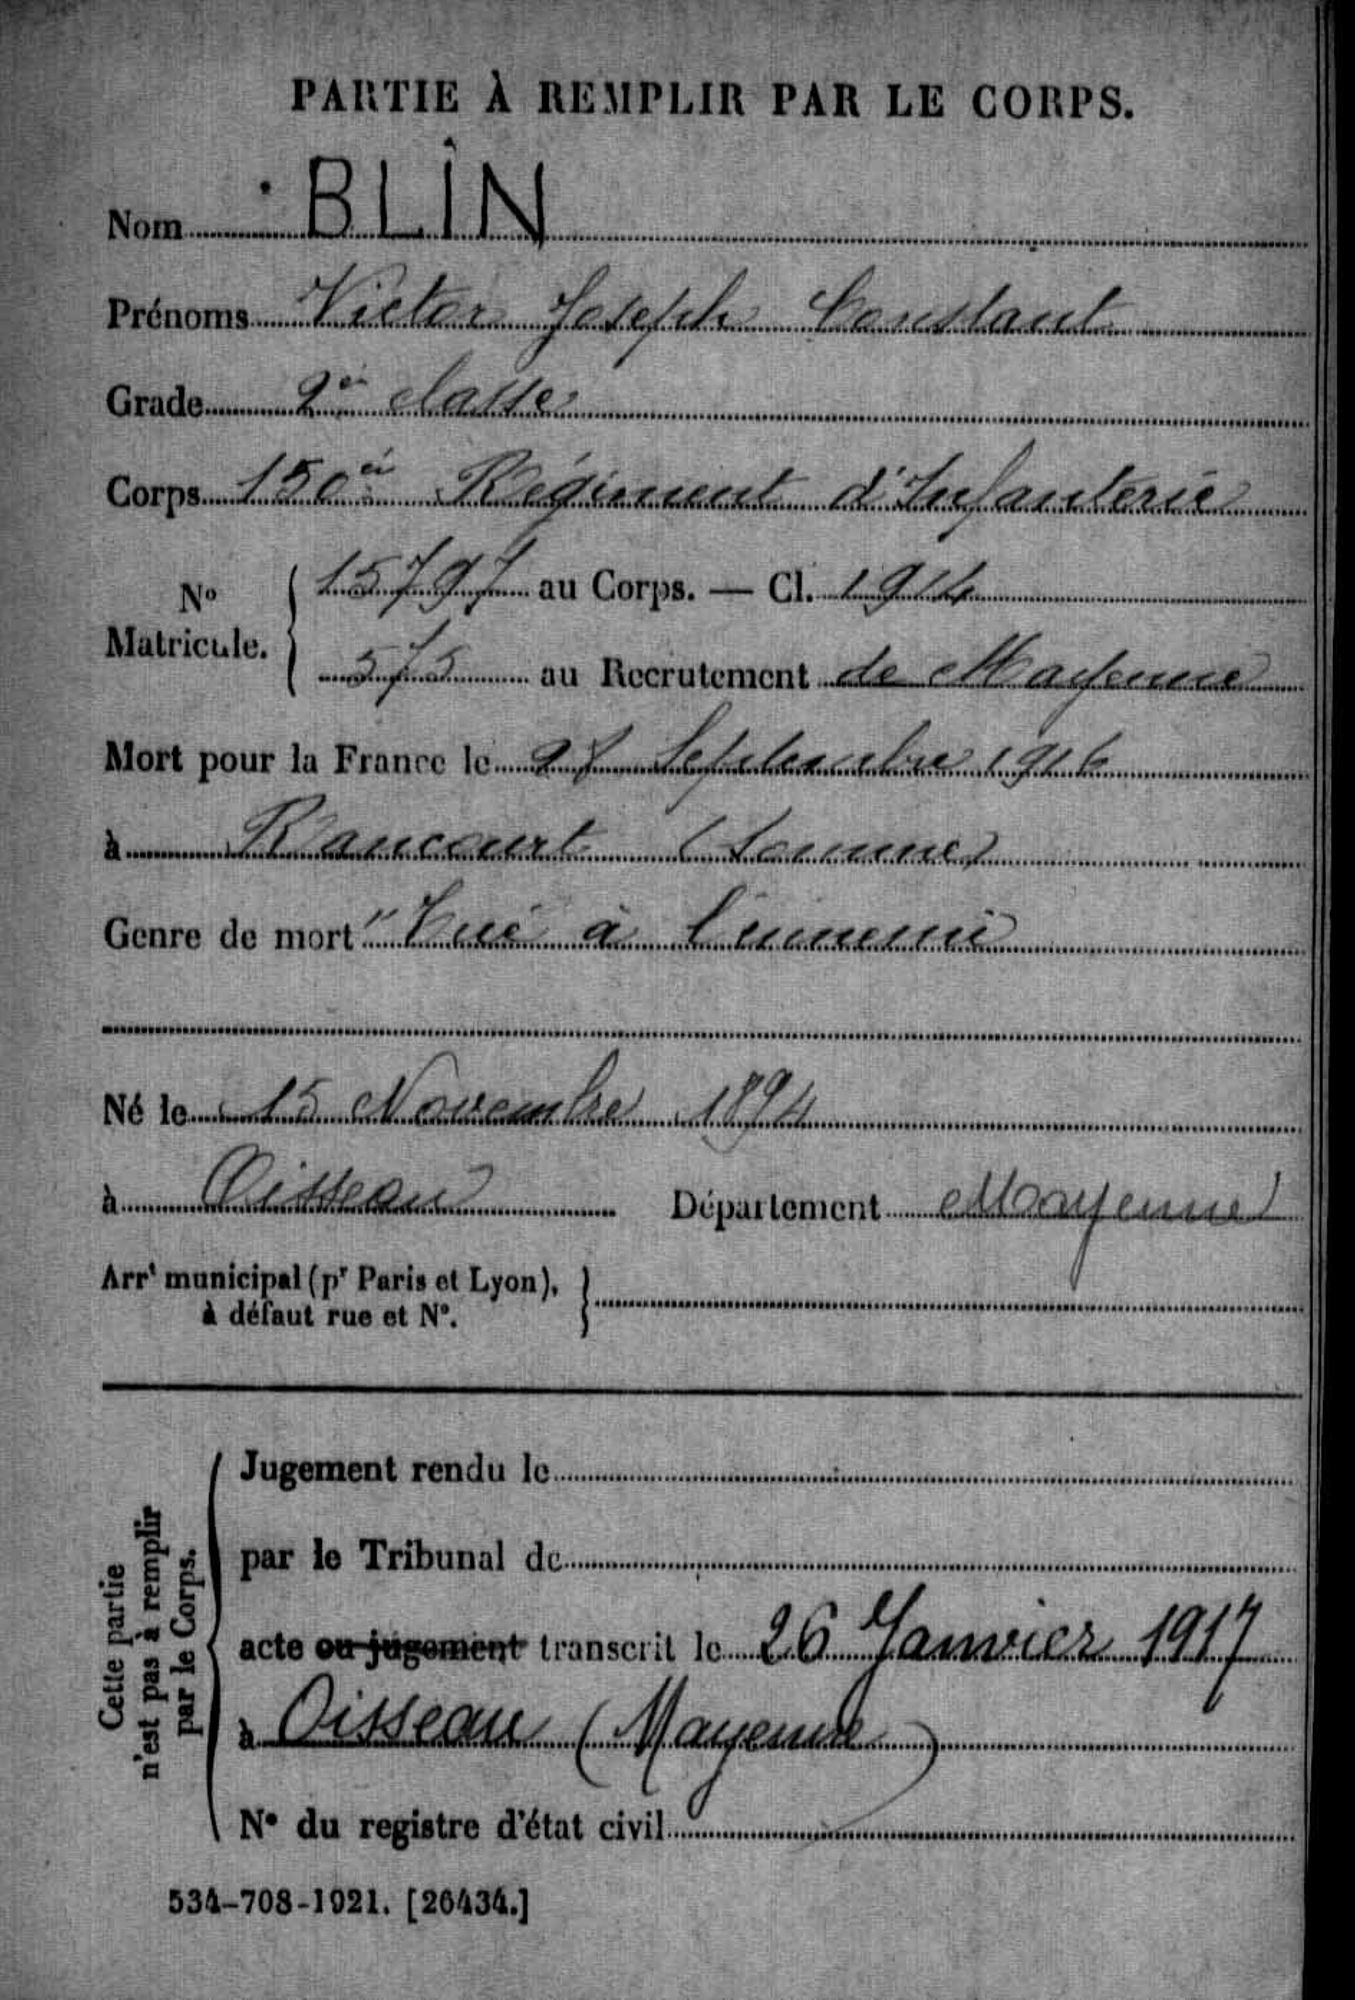 PARTIE À REMPLIR PAR LE CORPS.
Nom BLIN
Prénoms Victor Joseph Constant
Grade 2e classe
Corps 150e Régiment d'Infanterie
No Matricule. { 15797 au Corps. — Cl. 1914
575 au Recrutement de Mayenne
Mort pour la France le 27 Septembre 1916
à Rancourt (Somme)
Genre de mort "Tué à l'ennemi
Né le 15 Novembre 1894
à Oisseau Département Mayenne
Arrt municipal (pr Paris et Lyon), }
à défaut rue et No.
Cette partie n'est pas à remplir par le Corps.
Jugement rendu le
par le Tribunal de
acte ou jugement transcrit le 26 Janvier 1917
à Oisseau (Mayenne)
No du registre d'état civil
534-708-1921. [26434.]